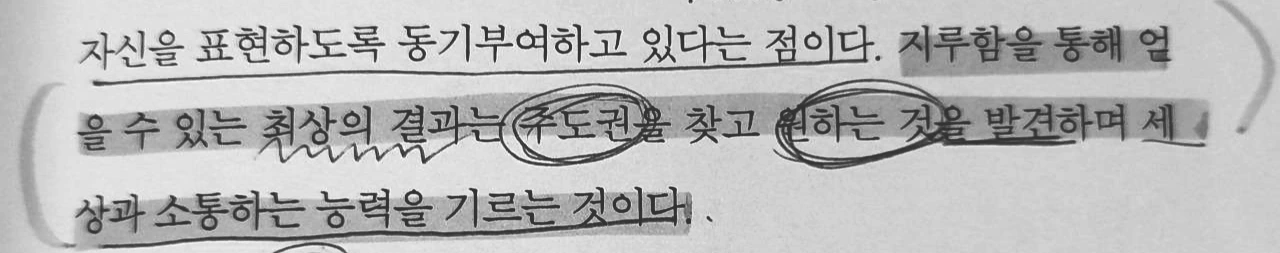 자신을 표현하도록 동기부여하고 있다는 점이다. 지루함을 통해 얻
을 수 있는 최상의 결과는 주도권을 찾고 원하는 것을 발견하며 세
상과 소통하는 능력을 기르는 것이다.